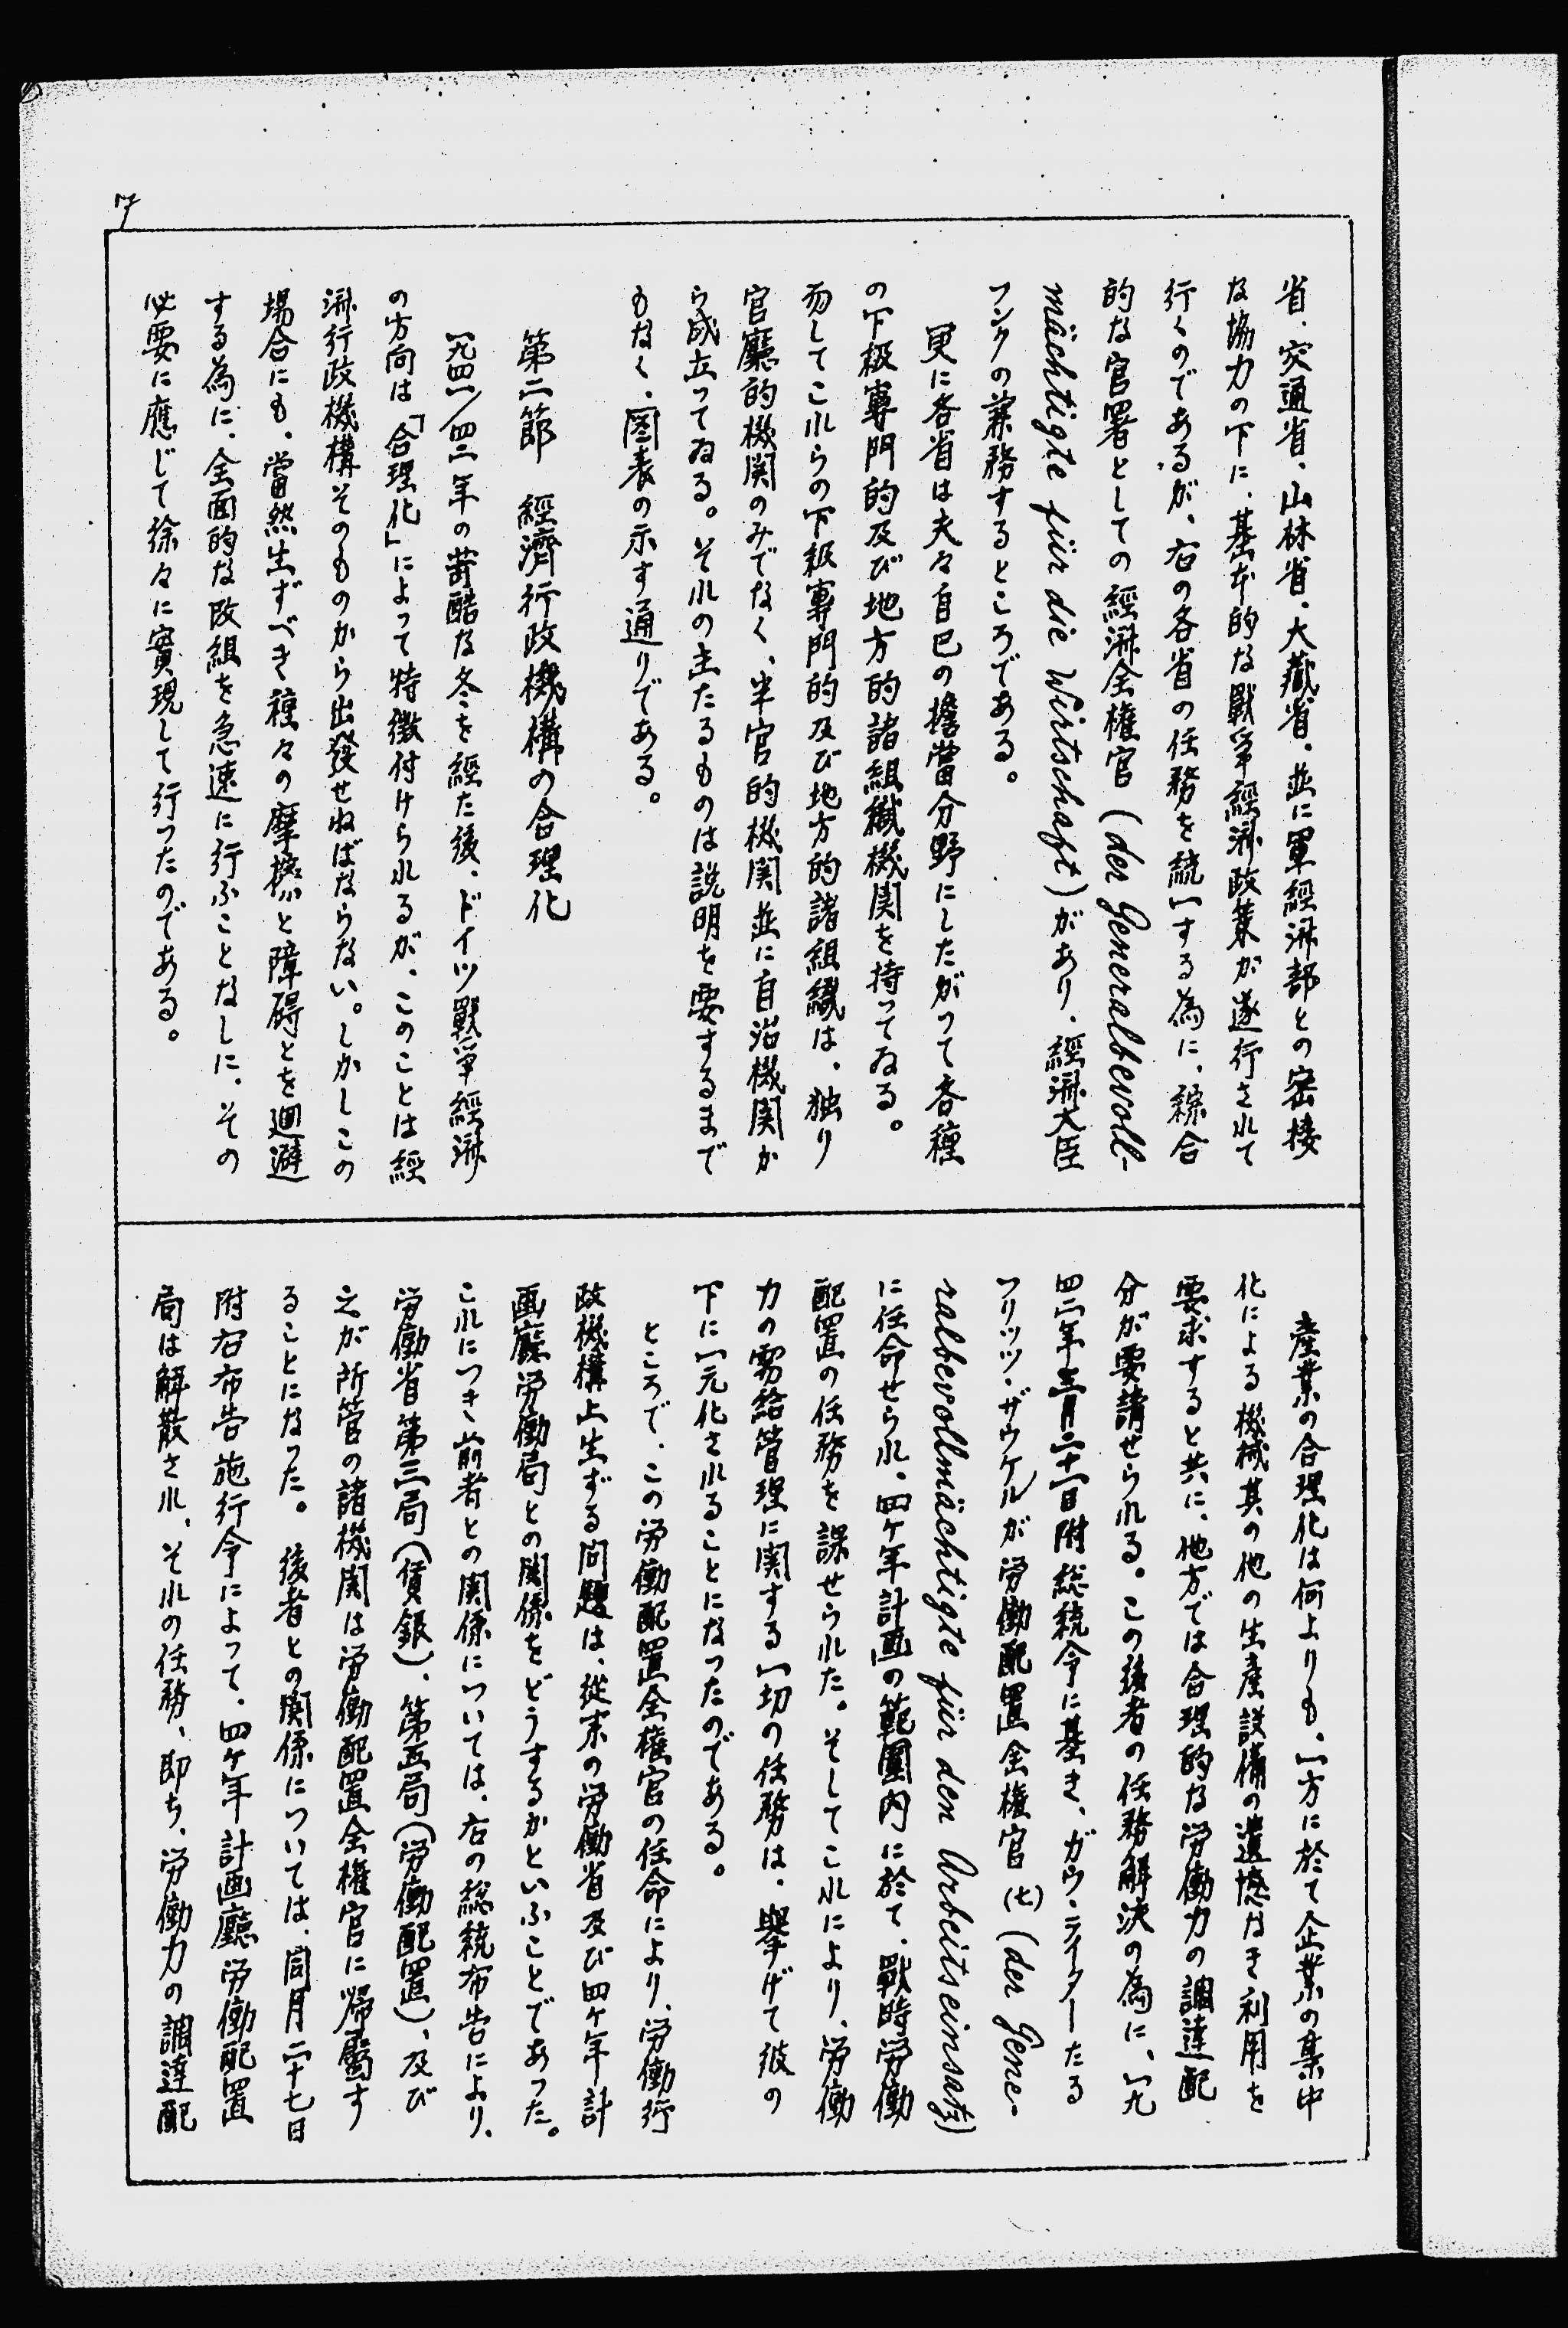 7
省、交通省、山林省、大蔵省、並に軍經済部との密接
な協力の下に、基本的な戰爭經済政策が遂行されて
行くのであるが、右の各省の任務を統一する為に、綜合
的な官署としての經済全権官（der Generalbevoll-
mächtigte für die Wirtschaft）があり、經済大臣
フンクの兼務するところである。
更に各省は夫々自己の擔當分野にしたがって各種
の下級専門的及び地方的諸組織機関を持ってゐる。
而してこれらの下級専門的及び地方的諸組織は、独り
官廳的機関のみでなく、半官的機関並に自治機関か
ら成立ってゐる。それの主たるものは説明を要するまで
もなく、圖表の示す通りである。
第二節　經濟行政機構の合理化
一九四一/四二年の苛酷な冬を經た後、ドイツ戰爭經済
の方向は「合理化」によって特徴付けられるが、このことは經
済行政機構そのものから出發せねばならない。しかしこの
場合にも、當然生ずべき種々の摩擦と障碍とを廻避
する為に、全面的な改組を急速に行ふことなしに、その
必要に應じて徐々に實現して行ったのである。
産業の合理化は何よりも、一方に於て企業の集中
化による機械其の他の生産設備の遺憾なき利用を
要求すると共に、他方では合理的な労働力の調達配
分が要請せられる。この後者の任務解決の為に、一九
四二年三月二十一日附総統令に基き、ガウ・ライターたる
フリッツ・ザウケルが労働配置全権官（七）（der Gene-
ralbevollmächtigte für den Arbeitseinsatz）
に任命せられ、四ヶ年計画の範圍内に於て、戰時労働
配置の任務を課せられた。そしてこれにより、労働
力の需給管理に関する一切の任務は、擧げて彼の
下に一元化されることになったのである。
ところで、この労働配置全権官の任命により、労働行
政機構上生ずる問題は、從来の労働省及び四ヶ年計
画廳労働局との関係をどうするかといふことであった。
これにつき前者との関係については、右の総統布告により、
労働省第三局（賃銀）、第五局（労働配置）、及び
之が所管の諸機関は労働配置全権官に帰屬す
ることになった。後者との関係については、同月二十七日
附右布告施行令によって、四ヶ年計画廳労働配置
局は解散され、それの任務、即ち、労働力の調達配